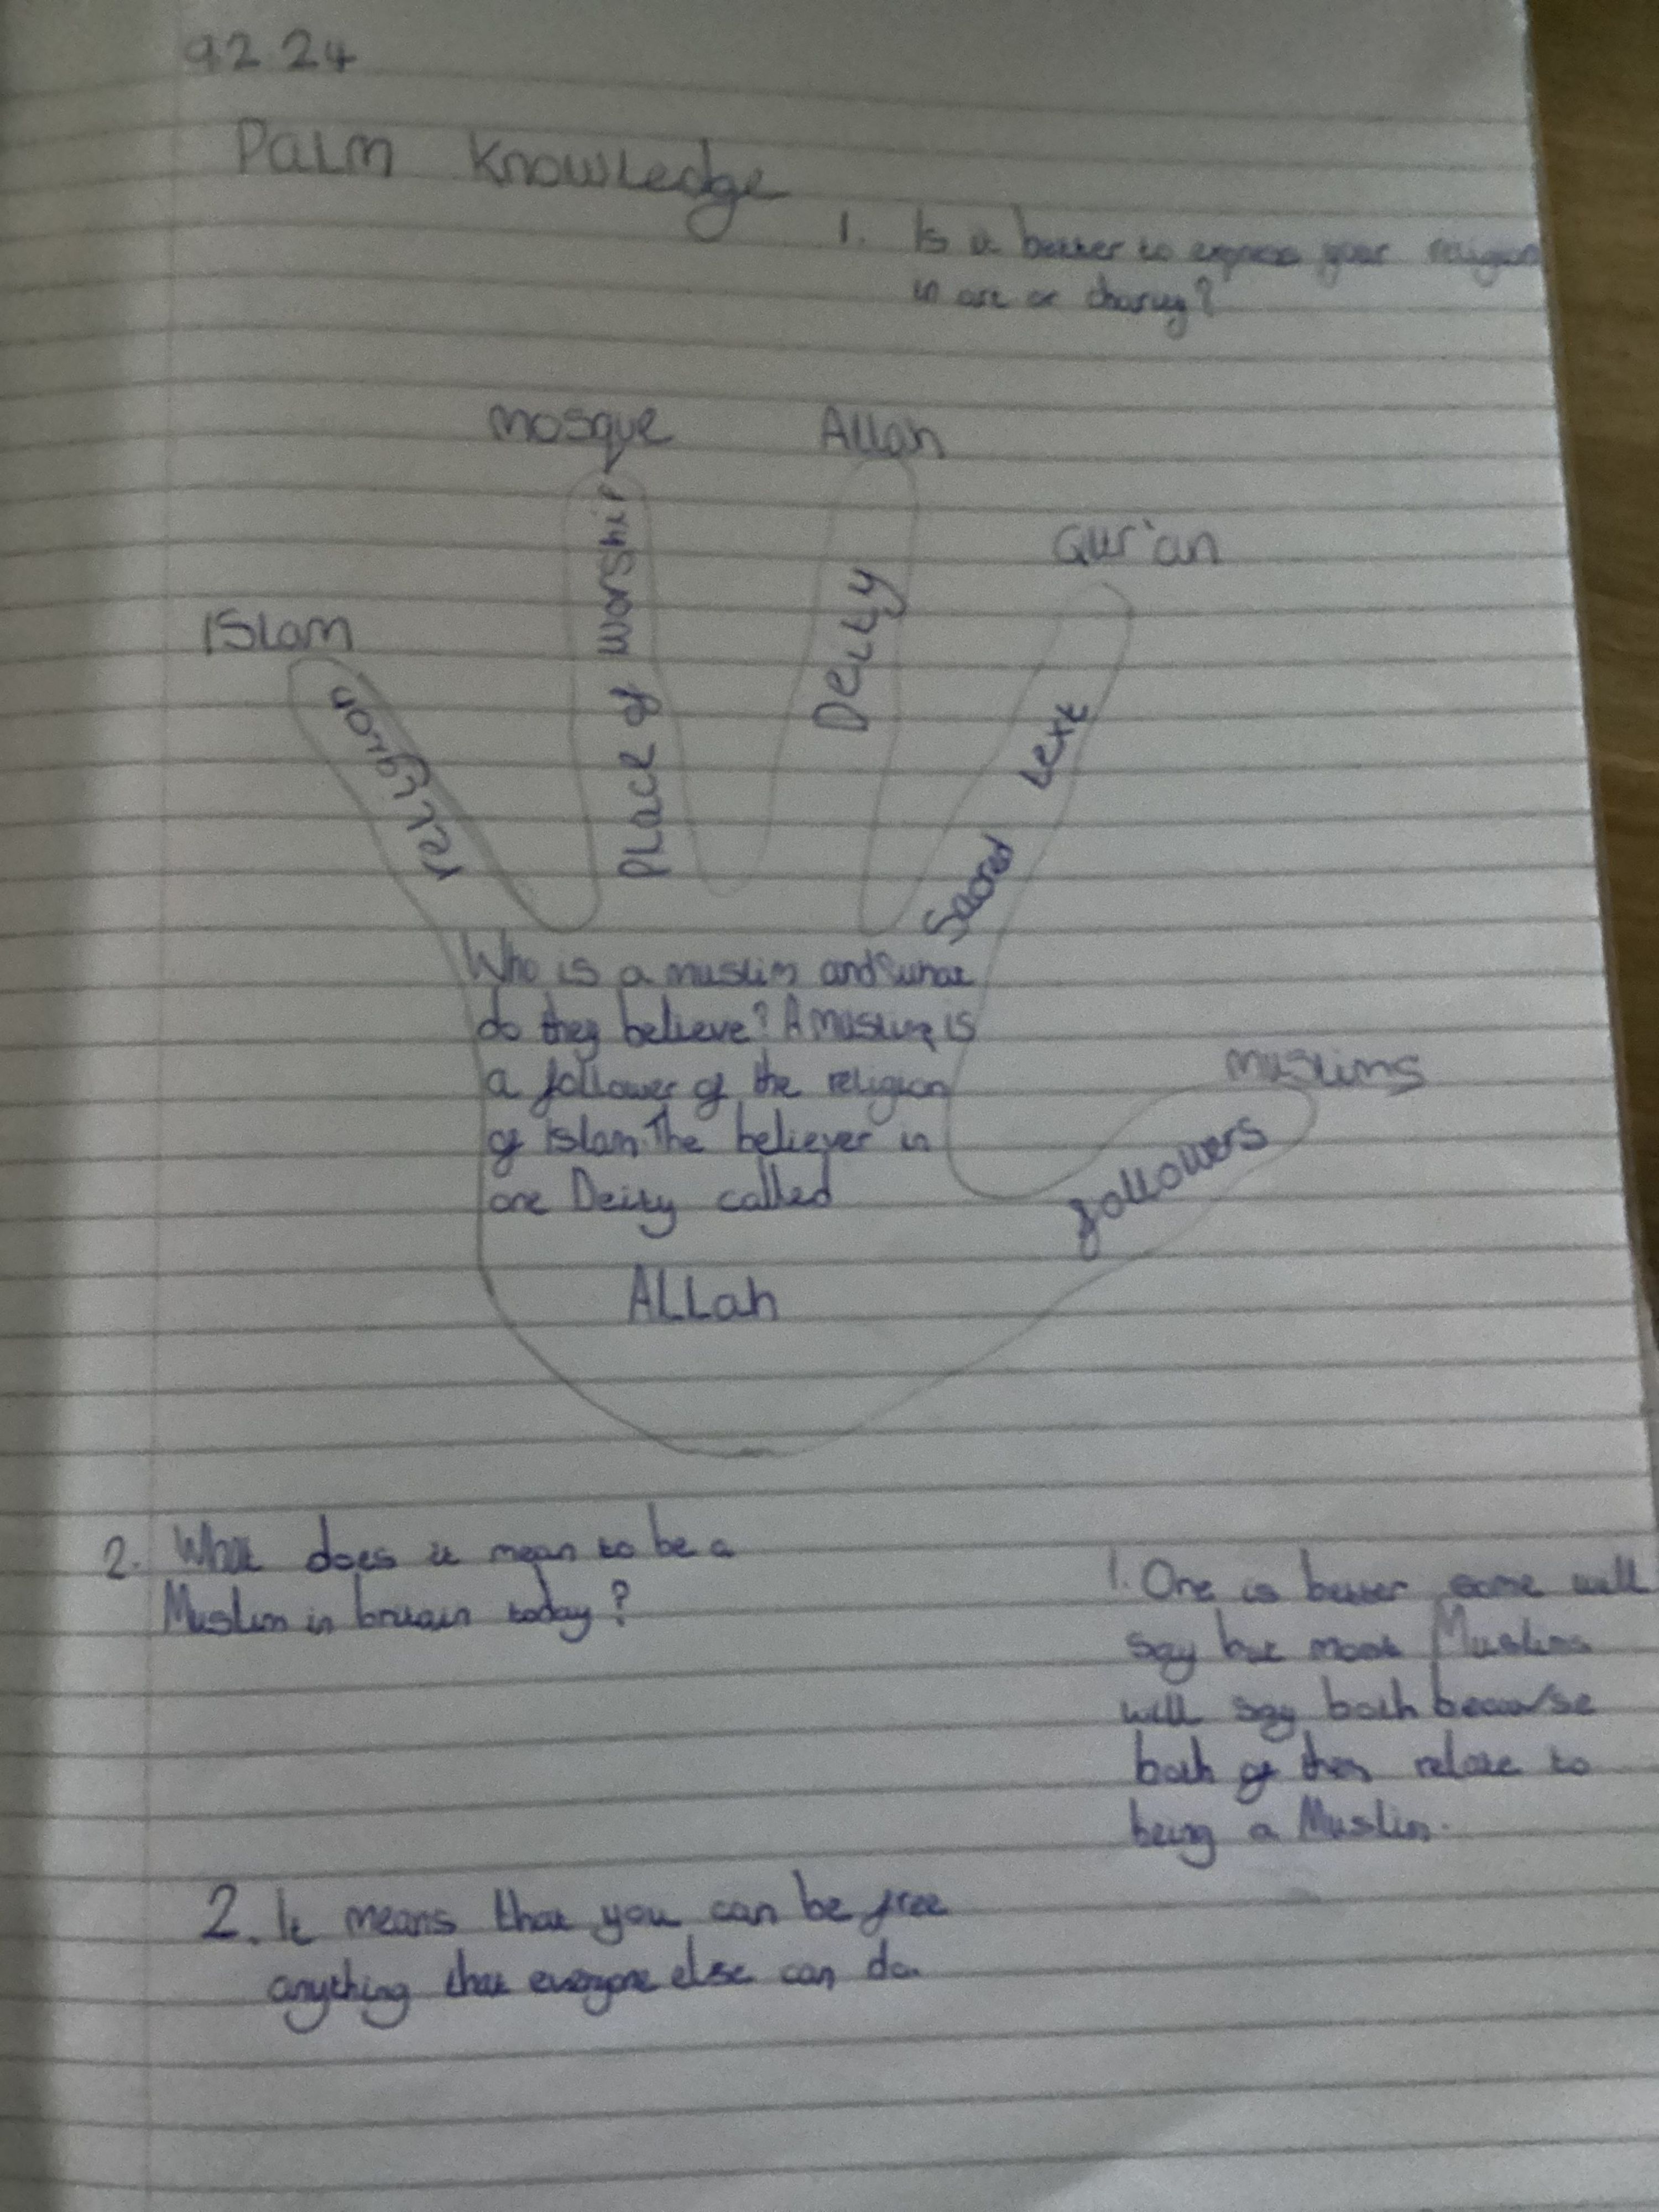 9.2.24
Palm Knowledge
1. Is it better to express your religion
in art or charity?
mosque
Allah
Qur'an
Islam
religion
Place of worship
Deity
Sacred text
Who is a muslim and what
do they believe? A muslim is
a follower of the religion
of Islam. The believer in
one Deity called
ALLah
muslims
followers
2. What does it mean to be a
Muslim in britain today?
1. One is better some will
say but most Muslims
will say both because
both of them relate to
being a Muslim.
2. It means that you can be free
anything that everyone else can do.